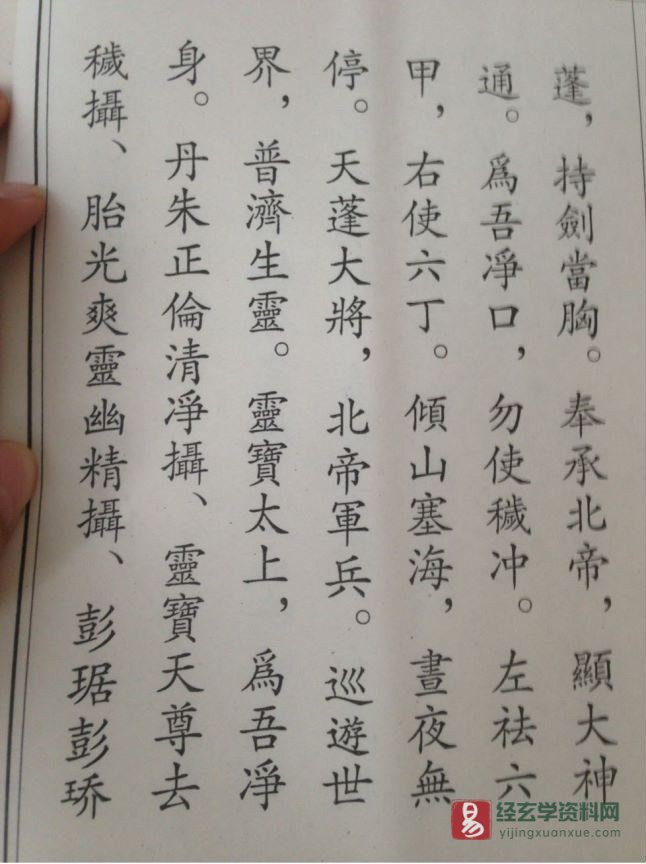 蓬，持劍當胸。奉承北帝，顯大神
通。爲吾凈口，勿使穢冲。左祛六
甲，右使六丁。傾山塞海，晝夜無
停。天蓬大將，北帝軍兵。巡遊世
界，普濟生靈。靈寶太上，爲吾凈
身。丹朱正倫清凈攝、靈寶天尊去
穢攝、胎光爽靈幽精攝、彭琚彭琋
易 经玄学资料网
yijingxuanxue.com